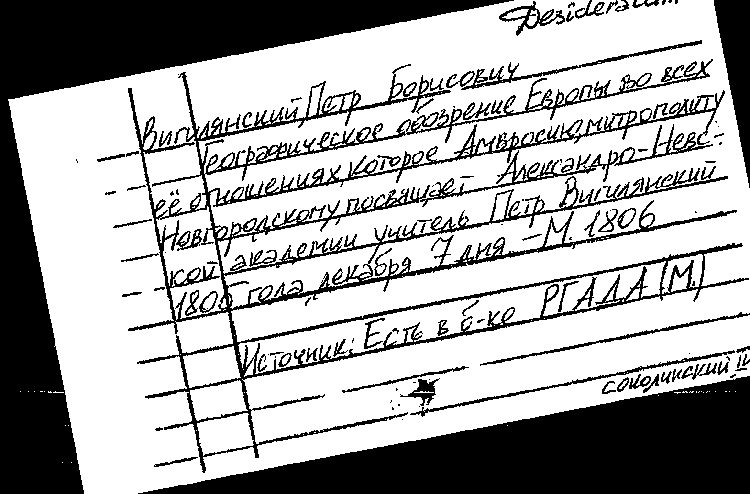 Desideratum
Вигилянский, Петр Борисович
Географическое обозрение Европы во всех
её отношениях, которое Амвросию, митрополиту
Новгородскому, посвящает Александро-Невс-
кой академии учитель Петр Вигилянский
1806 года, декабря 7 дня. – М. 1806
Источник: Есть в б-ке РГАДА (М.)
соколинский